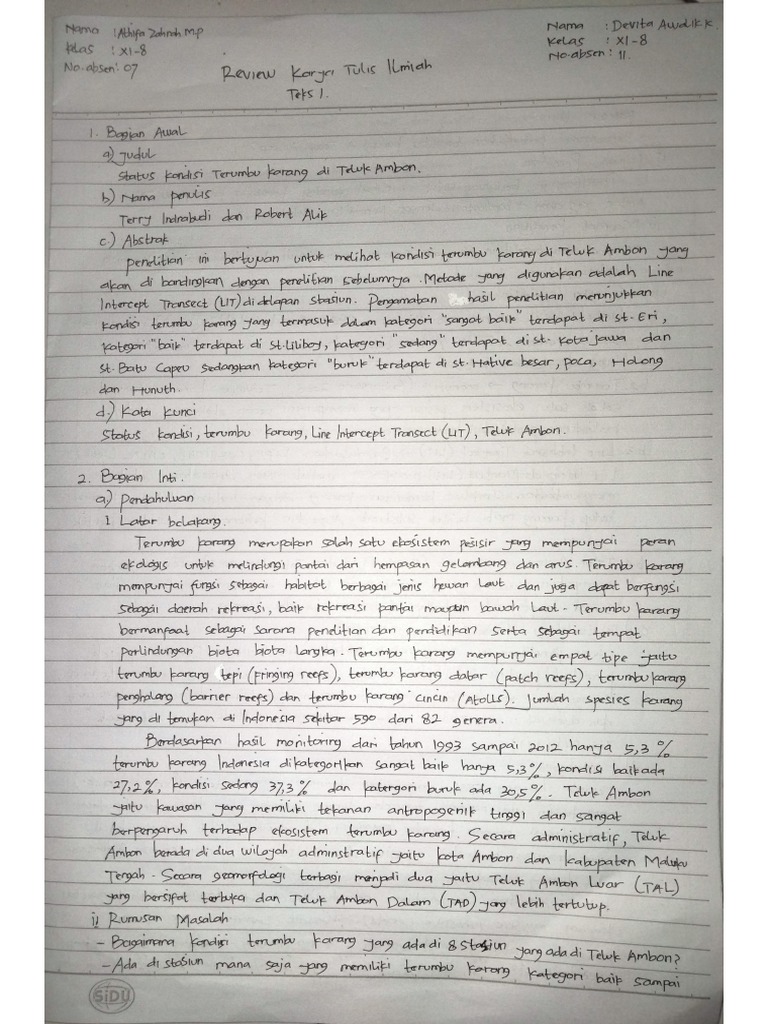 Nama : Athifa Zahrah M.P
Kelas : XI-8
No.absen : 07
Nama : Devita Awalik.K
Kelas : XI-8
No.absen : 11.
Review Karya Tulis Ilmiah
Teks 1.
1. Bagian Awal
a) Judul
Status Kondisi Terumbu Karang di Teluk Ambon.
b.) Nama penulis
Terry Indrabudi dan Robert Alik
c.) Abstrak
penelitian ini bertujuan untuk melihat kondisi terumbu karang di Teluk Ambon yang
akan di bandingkan dengan penelitian sebelumnya. Metode yang digunakan adalah Line
Intercept Transect (LIT) di delapan stasiun. Pengamatan hasil penelitian menunjukkan
kondisi terumbu karang yang termasuk dalam kategori "sangat baik" terdapat di st. Eri,
kategori "baik" terdapat di st.Liliboy, kategori "sedang" terdapat di st. Kota jawa dan
st. Batu Capeu sedangkan kategori "buruk" terdapat di st. Hative besar, poca, Halong
dan Hunuth.
d.) Kata kunci
Status kondisi, terumbu karang, Line Intercept Transect (LIT), Teluk Ambon.
2. Bagian Inti.
a.) Pendahuluan
1 Latar belakang.
Terumbu karang merupakan salah satu ekosistem pesisir yang mempunyai peran
ekologis untuk melindungi pantai dari hempasan gelombang dan arus. Terumbu karang
mempunyai fungsi sebagai habitat berbagai jenis hewan laut dan juga dapat berfungsi
sebagai daerah rekreasi, baik rekreasi pantai maupun bawah laut. Terumbu karang
bermanfaat sebagai sarana penelitian dan pendidikan serta sebagai tempat
perlindungan biota biota langka. Terumbu karang mempunyai empat tipe yaitu
terumbu karang tepi (fringing reefs), terumbu karang datar (patch reefs), terumbu karang
penghalang (barrier reefs) dan terumbu karang cincin (Atolls). Jumlah spesies karang
yang di temukan di Indonesia sekitar 590 dari 82 genera.
Berdasarkan hasil monitoring dari tahun 1993 sampai 2012 hanya 5,3 %
terumbu karang Indonesia dikategorikan sangat baik hanya 5,3%, kondisi baik ada
27,2%, kondisi sedang 37,3% dan katergori buruk ada 30,5%. Teluk Ambon
yaitu kawasan yang memiliki tekanan antropogenik tinggi dan sangat
berpengaruh terhadap ekosistem terumbu karang. Secara administratif, Teluk
Ambon berada di dua wilayah adminstratif yaitu kota Ambon dan kabupaten Maluku
Tengah. Secara geomorfologi terbagi menjadi dua yaitu Teluk Ambon Luar (TAL)
yang bersifat terbuka dan Teluk Ambon Dalam (TAD) yang lebih tertutup.
ii) Rumusan Masalah
- Bagaimana kondisi terumbu karang yang ada di 8 stasiun yang ada di Teluk Ambon?
- Ada di stasiun mana saja yang memiliki terumbu karang kategori baik sampai
SiDU